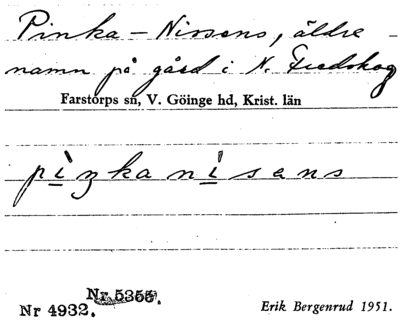 Pinka - Nissens, äldre
namn på gård i N. Fredskog
Farstorps sn, V. Göinge hd, Krist. län
pìŋka nìsens
Nr 5355.
Nr 4932.
Erik Bergenrud 1951.